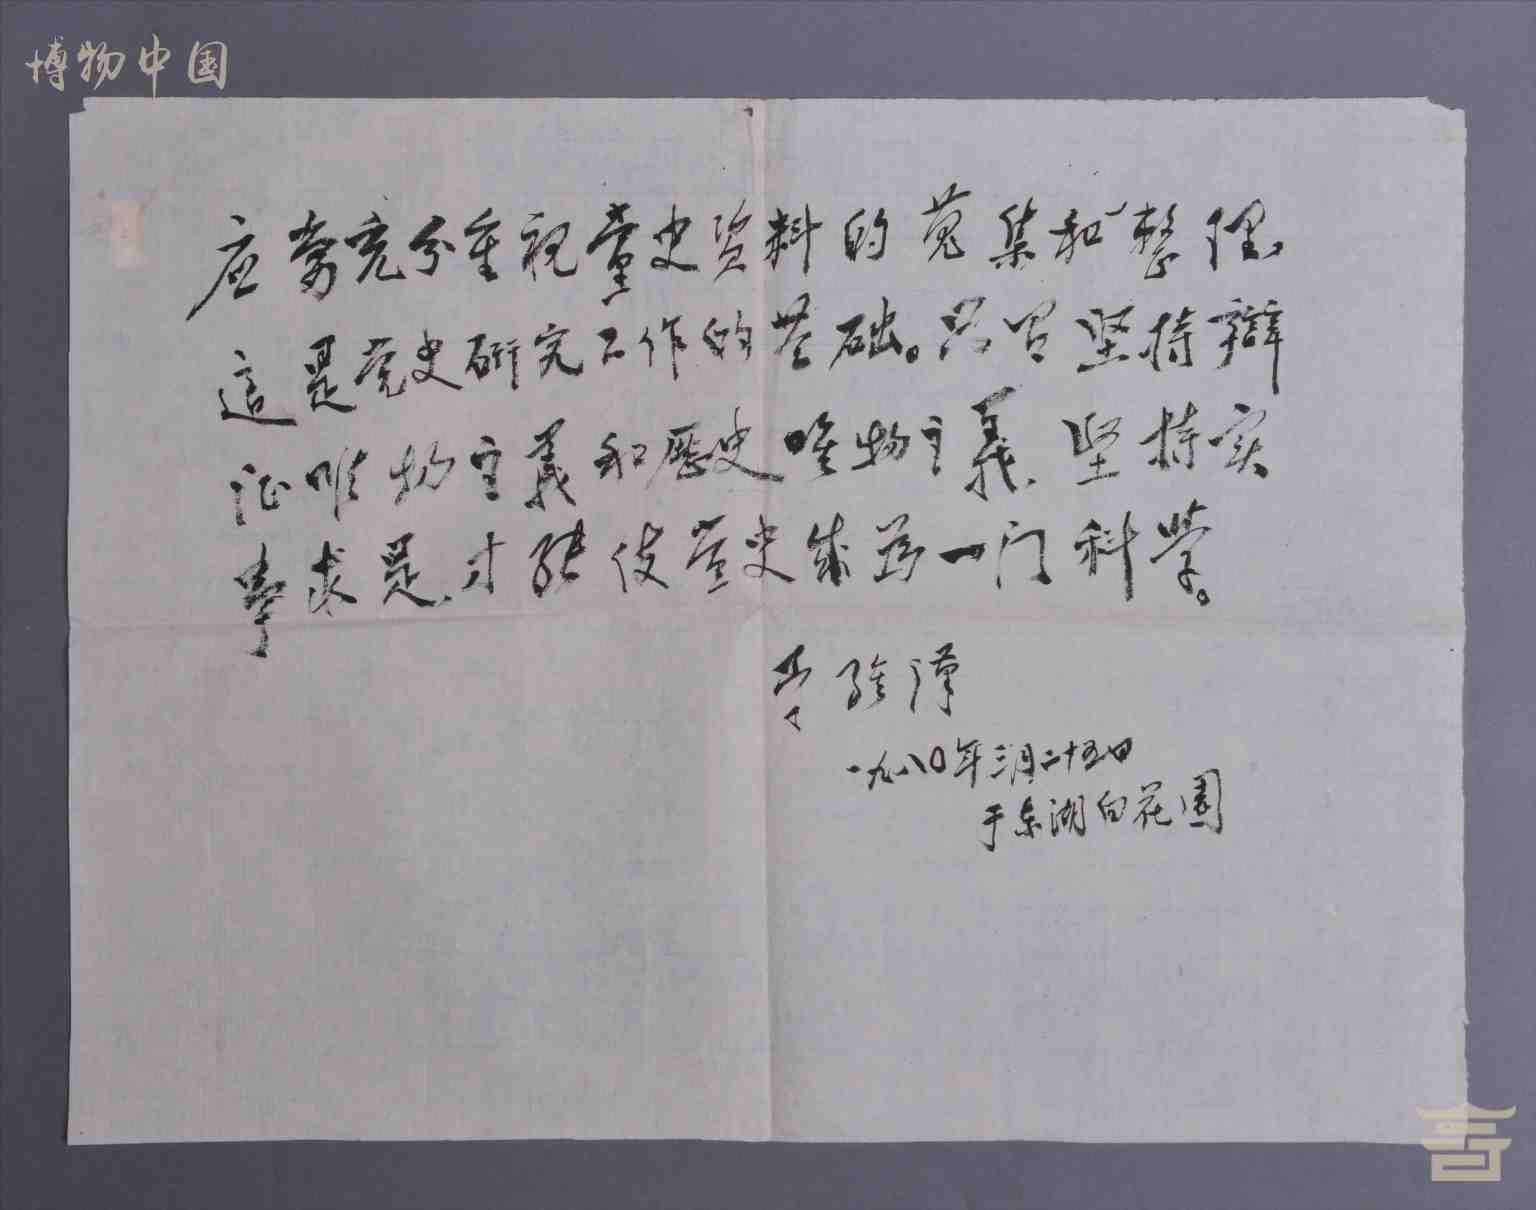 博物中国
应当充分重视党史资料的蒐集和整理,
這是党史研究工作的基础。只有坚持辩
证唯物主義和歷史唯物主義,坚持实
事求是,才能使党史成为一门科学。
李维汉
一九八〇年三月二十五日
于东湖百花園